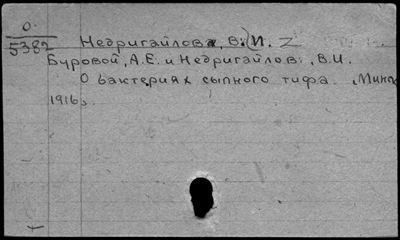 О.
5382
Недригайлов, В. И.
Буровой, А.Е. и Недригайлов, В.И.
О бактериях сыпного тифа.
1916г.